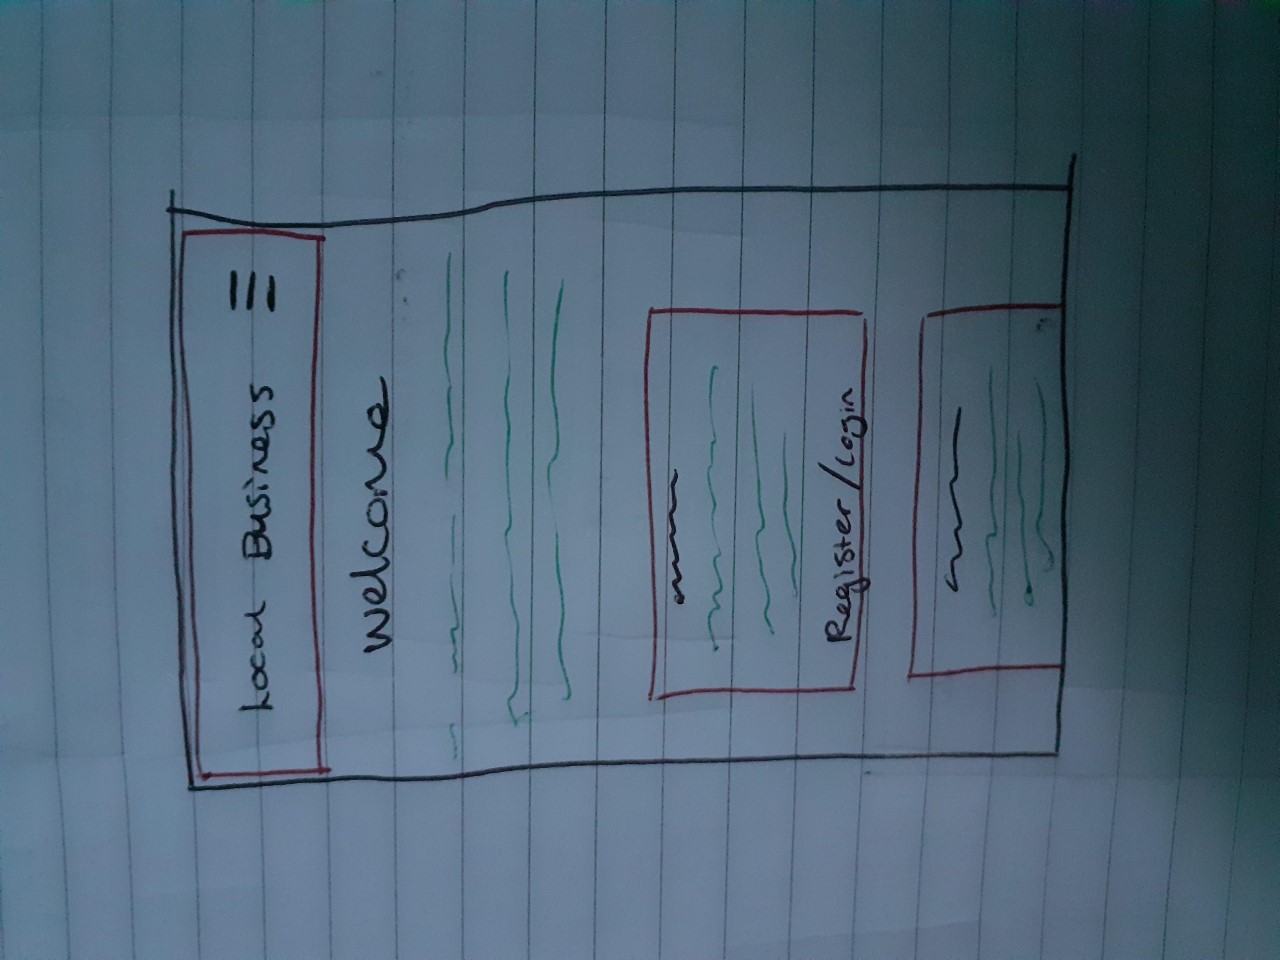 Local Business
Welcome
Register/Login